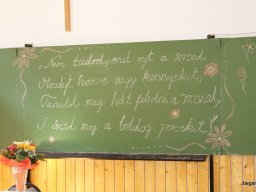 „Nem tudod, mit rejt a sorsod,
Mosolyt hoz-e vagy könnyeket,
Tanuld meg hát tűrni a rosszat,
S érezd meg a boldog perceket!"
.began